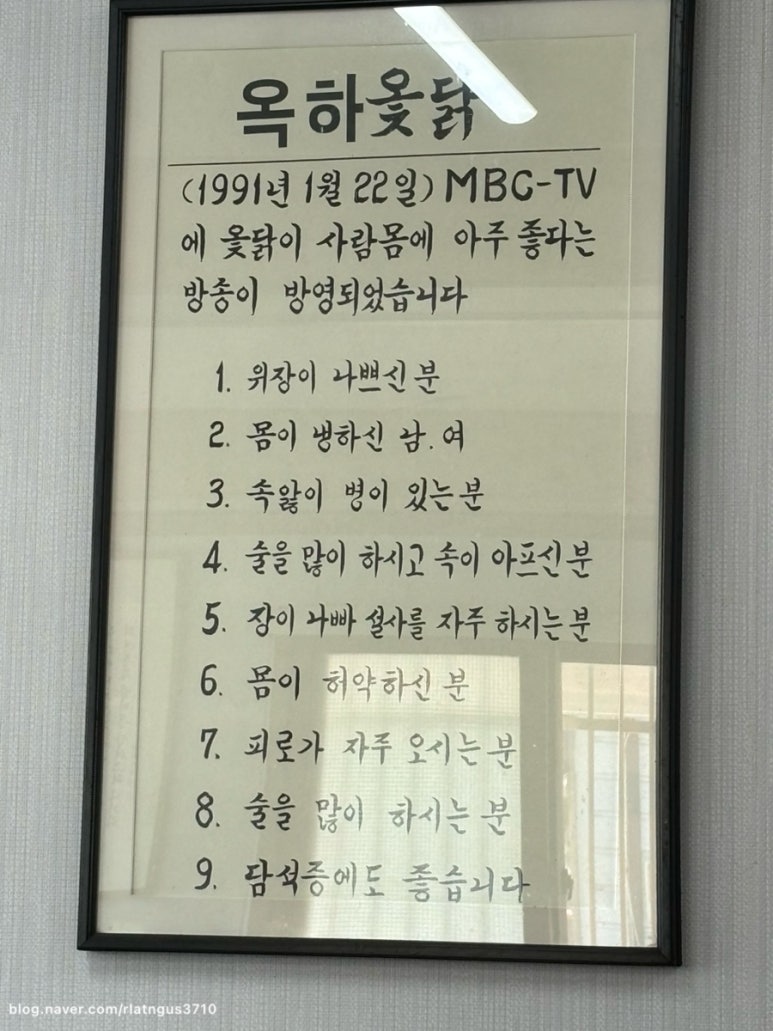 옥하옻닭
(1991년 1월 22일) MBC-TV
에 옻닭이 사람몸에 아주 좋다는
방송이 방영되었습니다
1. 위장이 나쁘신 분
2. 몸이 냉하신 남.여
3. 속앓이 병이 있는 분
4. 술을 많이 하시고 속이 아프신 분
5. 장이 나빠 설사를 자주 하시는 분
6. 몸이 허약하신 분
7. 피로가 자주 오시는 분
8. 술을 많이 하시는 분
9. 담석증에도 좋습니다
blog.naver.com/rlatngus3710